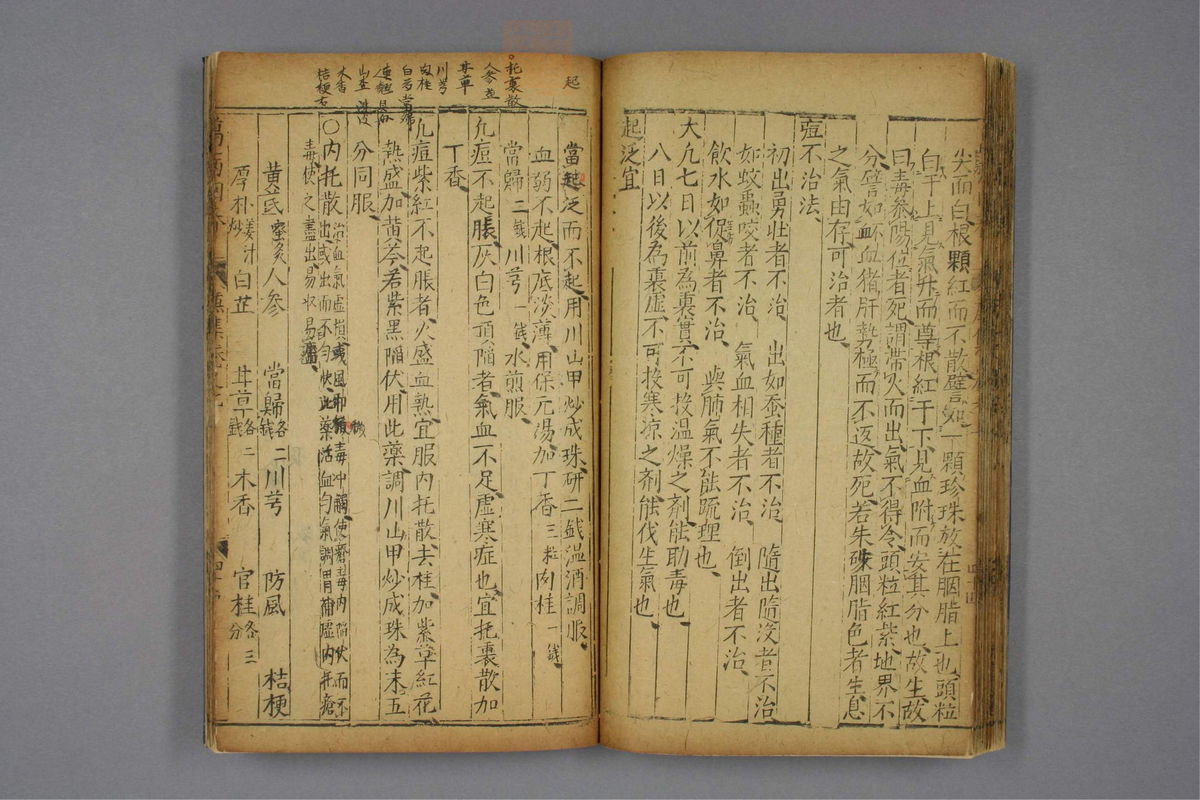 尖而白根顆紅而不散譬如一顆珍珠放在胭脂上也頭粒
白于上見氣升而尊根紅于下見血附而安其分也故生故
曰毒參陽位者死謂帶火而出氣不得令頭粒紅紫地界不
分譬如血猪肝熱極而不返故死若朱砂胭脂色者生息
之氣由存可治者也
痘不治法
初出勇壯者不治　出如蚕種者不治　隨出隨没者不治
如蚊蟲咬者不治　氣血相失者不治　倒出者不治
飲水如促鼻者不治　與肺氣不能疏理也
大凡七日以前為裏實不可投温燥之劑能助毒也
八日以後為裏虚不可投寒涼之劑能伐生氣也
起泛宜
起
當起泛而不起用川山甲炒成珠研二錢温酒調服
血弱不起根底淡薄用保元湯加丁香三粒肉桂一錢
當歸三錢川芎一錢水煎服
凡痘不起脹灰白色頂陷者氣血不足虚寒症也宜托裏散加
丁香
凡痘紫紅不起脹者火盛血熱宜服内托散去桂加紫草紅花
熱盛加黄芩若紫黑陷伏用此藥調川山甲炒成珠為末五
分同服
〇内托散治血氣虚損或風邪穢毒冲觸使瘡毒内陷伏而不
出或出而不匀快此藥活血匀氣調胃補虚内托瘡
毒使之盡出易收易靨
黄芪蜜炙人參　當歸各二錢川芎　防風　桔梗
厚朴姜汁炒白芷　甘草各二錢木香　官桂各三分
〇托裏散
人參
甘草
川芎
肉桂
白芍當歸
連翹
山查
木香
桔梗